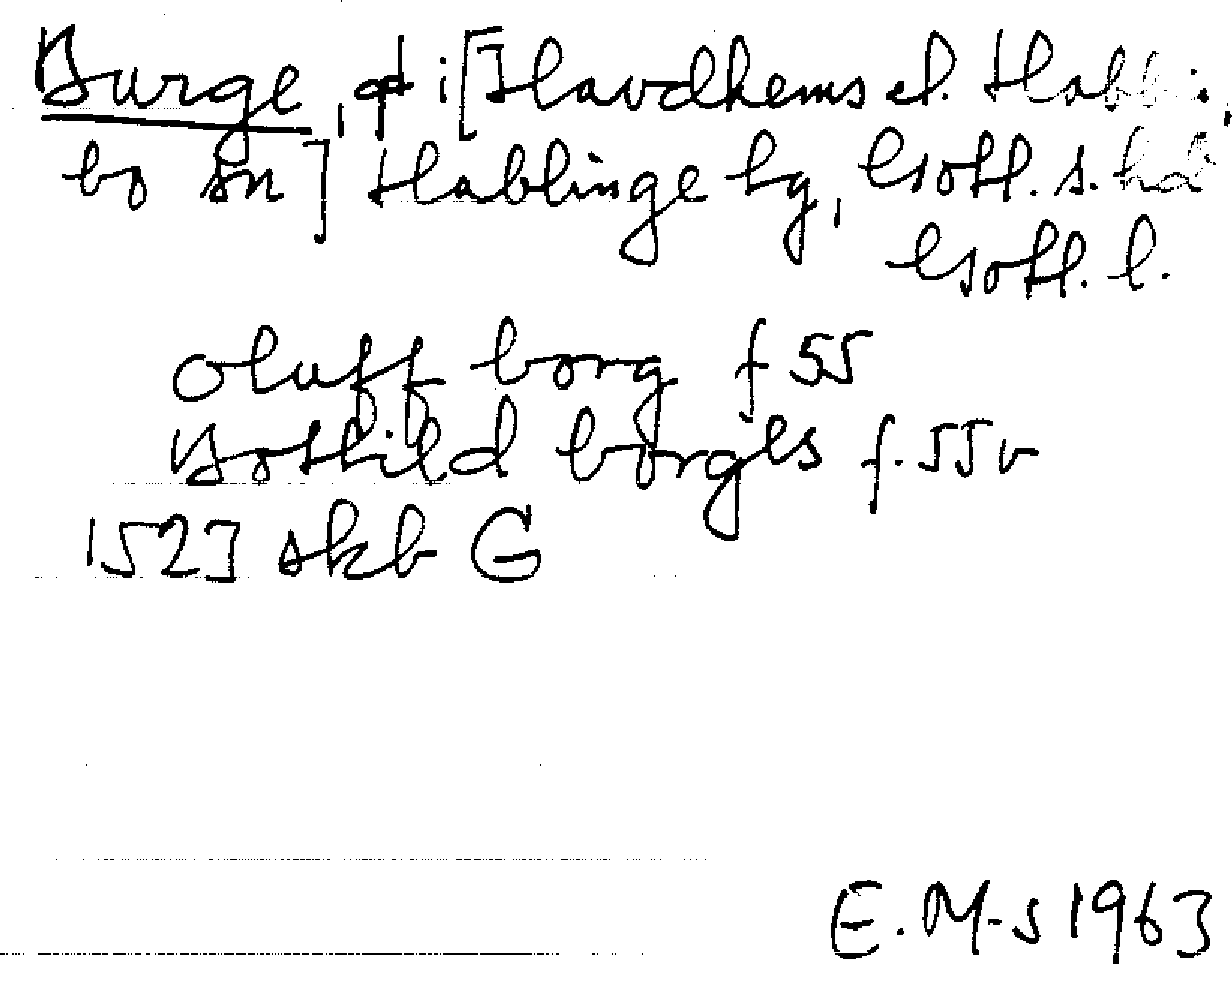 Burge, gd i [Havdhems el. Habbli,
bo sn] Hablinge tg, Gotl. s. hd
Gotl. l.
oluff borg f 55
Botthild borges f. 55v
1523 skb G
E. M-s 1963